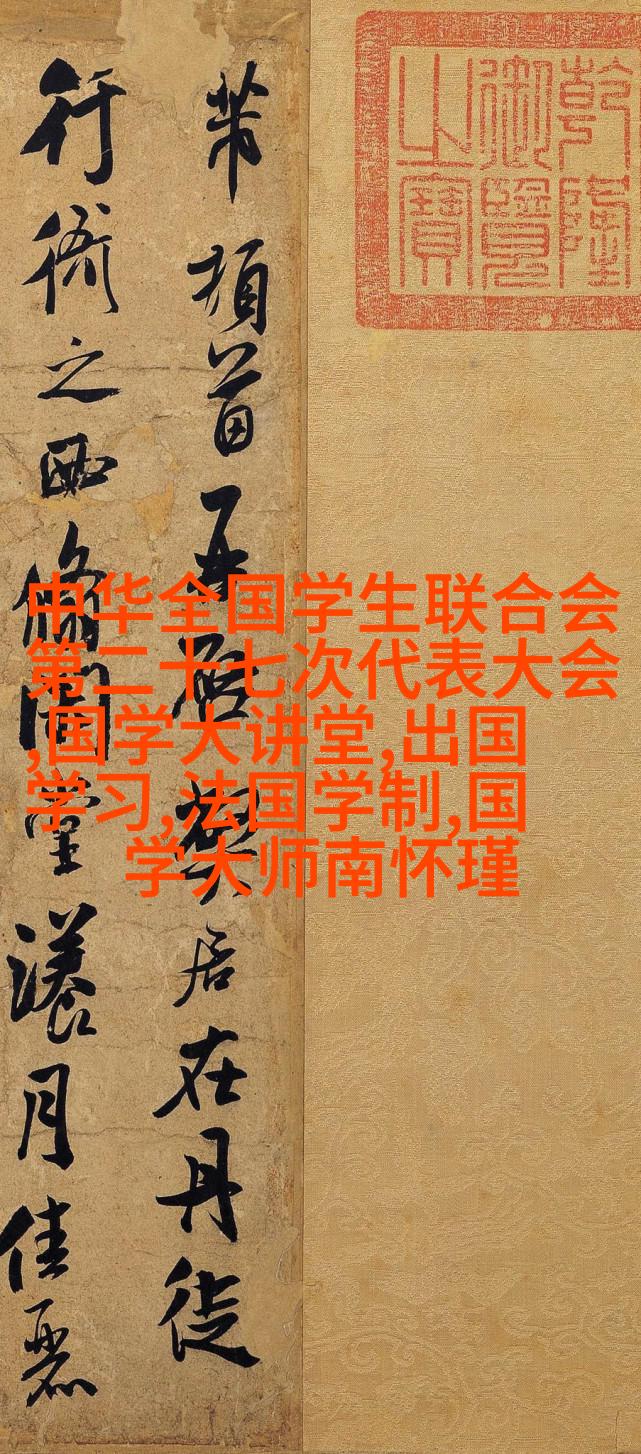 乾隆
御覽
之寶
芾頓首再啟弊居在丹徒
行衙之西翛閑堂漾月佳麗
中华全国学生联合会
第二十七次代表大会
,国学大讲堂,出国
学习,法国学制,国
学大师南怀瑾